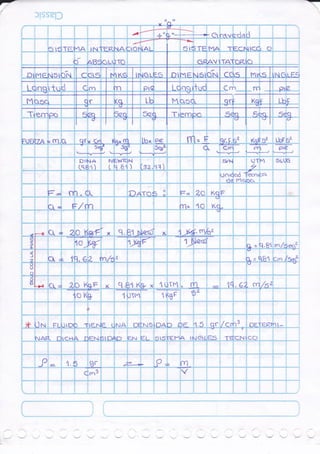 Classic
x "g"
÷ "g" → Gravedad
SISTEMA INTERNACIONAL | SISTEMA TECNICO O
Ó ABSOLUTO | GRAVITATORIO
DIMENSIÓN | CGS | MKS | INGLES | DIMENSIÓN | CGS | MKS | INGLES
Longitud | Cm | m | pie | Longitud | Cm | m | pie
Masa | gr | kg | Lb | Masa | grf | Kgf | Lbf
Tiempo | Seg | Seg | Seg | Tiempo | Seg | Seg | Seg
FUERZA = m.a gr x Cm/Seg² Kg x m/Seg² Lb x pie/Seg² m = F/a grf.S²/Cm Kgf.S²/m Lbf.S²/pie
DINA NEWTON UTM SLUG
(981) (9.81) (32.17)
Unidad Tecnica
de Masa
F = m.a DATOS: F = 20 Kgf
a = F/m m = 10 Kg
a = 20 Kgf/10 Kg x 9.81 New/1 Kgf x 1 Kg.m/s²/1 New
g = 9.81 m/seg²
a = 19.62 m/s² g = 981 Cm/Seg²
SOLO CON LA MASA
a = 20 Kgf/10 Kg x 9.81 Kg/1 UTM x 1 UTM.m/s²/1 Kgf = 19.62 m/s²
* UN FLUIDO TIENE UNA DENSIDAD DE 1.5 gr/cm³, DETERMI-
NAR DICHA DENSIDAD EN EL SISTEMA INGLES TECNICO
ρ = 1.5 gr/Cm³ ρ = m/V